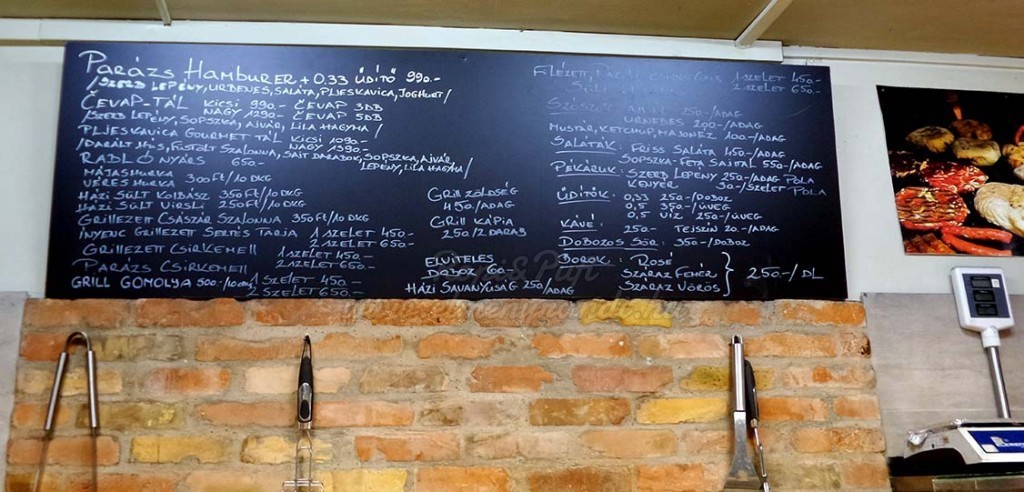 Parázs Hamburer + 0.33 üdítő 990.-
/Szerb lepény, urbenes, saláta, pljeskavica, joghurt/
Cevap-tál kicsi 990.- cevap 3db
nagy 1290.- cevap 5db
/Szerb lepény, sopszka, ajvár, lila hagyma/
Pljeskavica gourmet-tál kicsi 1090.-
nagy 1390.-
/Darált hús, füstölt szalonna, sajt darabok, sopszka, ajvár,
lepény, lila hagyma/
Radló nyárs 650.-
Májashurka
Véres hurka 300 Ft/10 dkg
Házi sült kolbász 350 Ft/10 dkg
Házi sült virsli 250 Ft/10 dkg
Grillezett császár szalonna 350 Ft/10 dkg
Inyenc grillezett sertés tarja 1 szelet 450.-
2 szelet 650.-
Grillezett csirkemell 1 szelet 450.-
2 szelet 650.-
Parázs csirkemell
Grill gomolya 500.-/10 dkg
1 szelet 450.-
2 szelet 650.-
Grill zöldség
450./adag
Grill kápia
250.-/2 darab
Elviteles
doboz 60.-
Házi savanyúság 250/adag
1 szelet 450.-
2 szelet 650.-
150.-/adag
Urnebes 200.-/adag
Mustár, ketchup, majonéz 100.-/adag
Saláták: Friss saláta 450.-/adag
Sopszka-feta sajttal 550.-/adag
Pékáruk: Szerb lepény 250.-/adag
Kenyér 30.-/szelet
Üdítők: 0,33 250.-/doboz
0,5 350.-/üveg
0,5 víz 250.-/üveg
Kávé: 250.- Tejszín 20.-/adag
Dobozos sör: 350.-/doboz
Borok: Rosé
Száraz fehér 250.-/dl
Száraz vörös